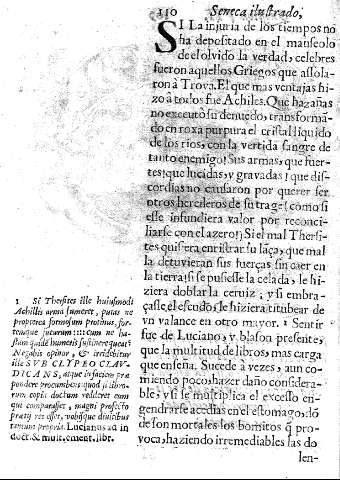 110 Seneca ilustrado,
SI La injuria de los tiempos no
ha depositado en el mauseolo
de el olvido la verdad, celebres
fueron aquellos Griegos que assola-
ron à Troya. El que mas ventajas hi-
zo à todos fue Achiles. Que hazañas
no executò su denuedo, transforman-
do en roxa purpura el cristal liquido
de los rios, con la vertida sangre de
tanto enemigo! Sus armas, que fuer-
tes! que lucidas, y gravadas! que dis-
cordias no causaron por querer ser
otros herederos de su trage! como si
este infundiera valor por reconci-
liarse con el azero! Si el mal Thersi-
tes quisiera enristrar su laça, que mal
la detuvieran sus fuerças sin caer en
la tierra! si se pusiesse la celada, le hi-
ziera doblar la ceruiz; y si embra-
çasse el escudo, le hiziera titubear de
vn valance en otro mayor. 1 Sentir
fue de Luciano, y blason presente,
que la multitud de libros, mas carga
que enseña. Sucede à vezes, aun co-
miendo poco, hazer daño considera-
ble, y si se multiplica el excesso en-
gendrarse acedias en el estomago, dõ
de son mortales los bomitos q̃ pro-
voca, haziendo irremediables las do
len-
1 Si Thersites ille huiusmodi
Achillis arma sumeret, putas ne
propterea formosum protinus, for-
temque futurum:::: cum ne ha-
stam quidẽ humeris sustinere queat?
Negabis opinor, & irridebitur
ille SUB CLYPEO CLAV-
DICANS, atque in faciem præ
pondere procumbens: quod si libro-
rum copia doctum redderet eum
qui comparasset, magni profecto
pratij res esset, vobisque divitibus
tantum propria. Lucianus ad in
doct. & mult. ement. libr.